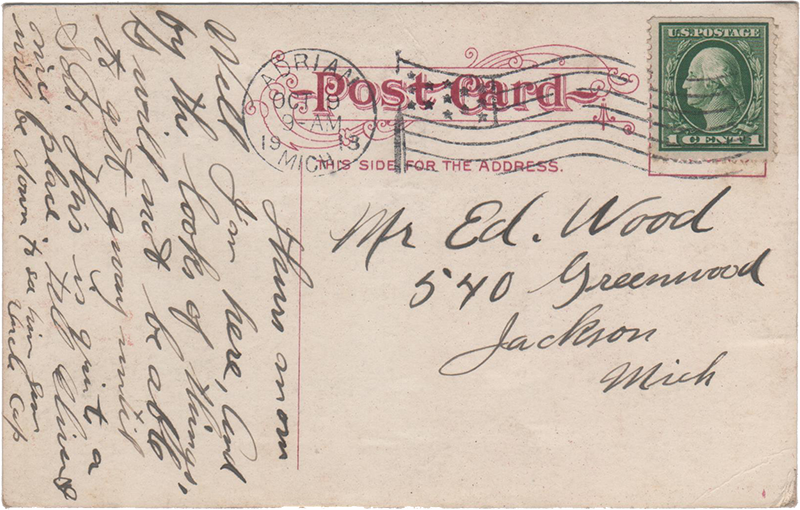 Post Card
THIS SIDE FOR THE ADDRESS.
ADRIAN
OCT 9
9-AM
1913
MICH.
U.S. POSTAGE
1 CENT 1
Mr Ed. Wood
540 Greenwood
Jackson
Mich
Thurs morn
Well I'm here, and
by the looks of things,
I will not be able
to get away until
Sat. This is quite a
nice place. tell Oliver I
will be down to see him Sun
Uncle Cap